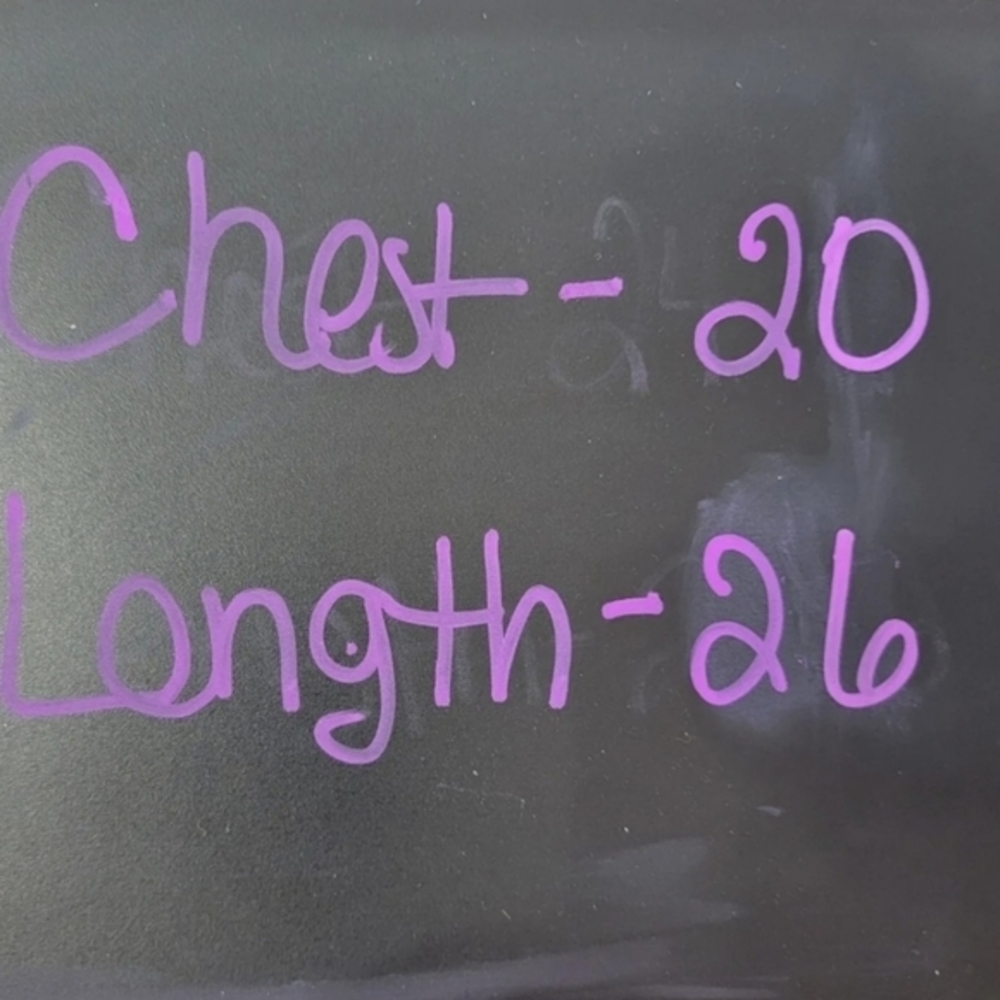 Chest - 20
Longth - 26